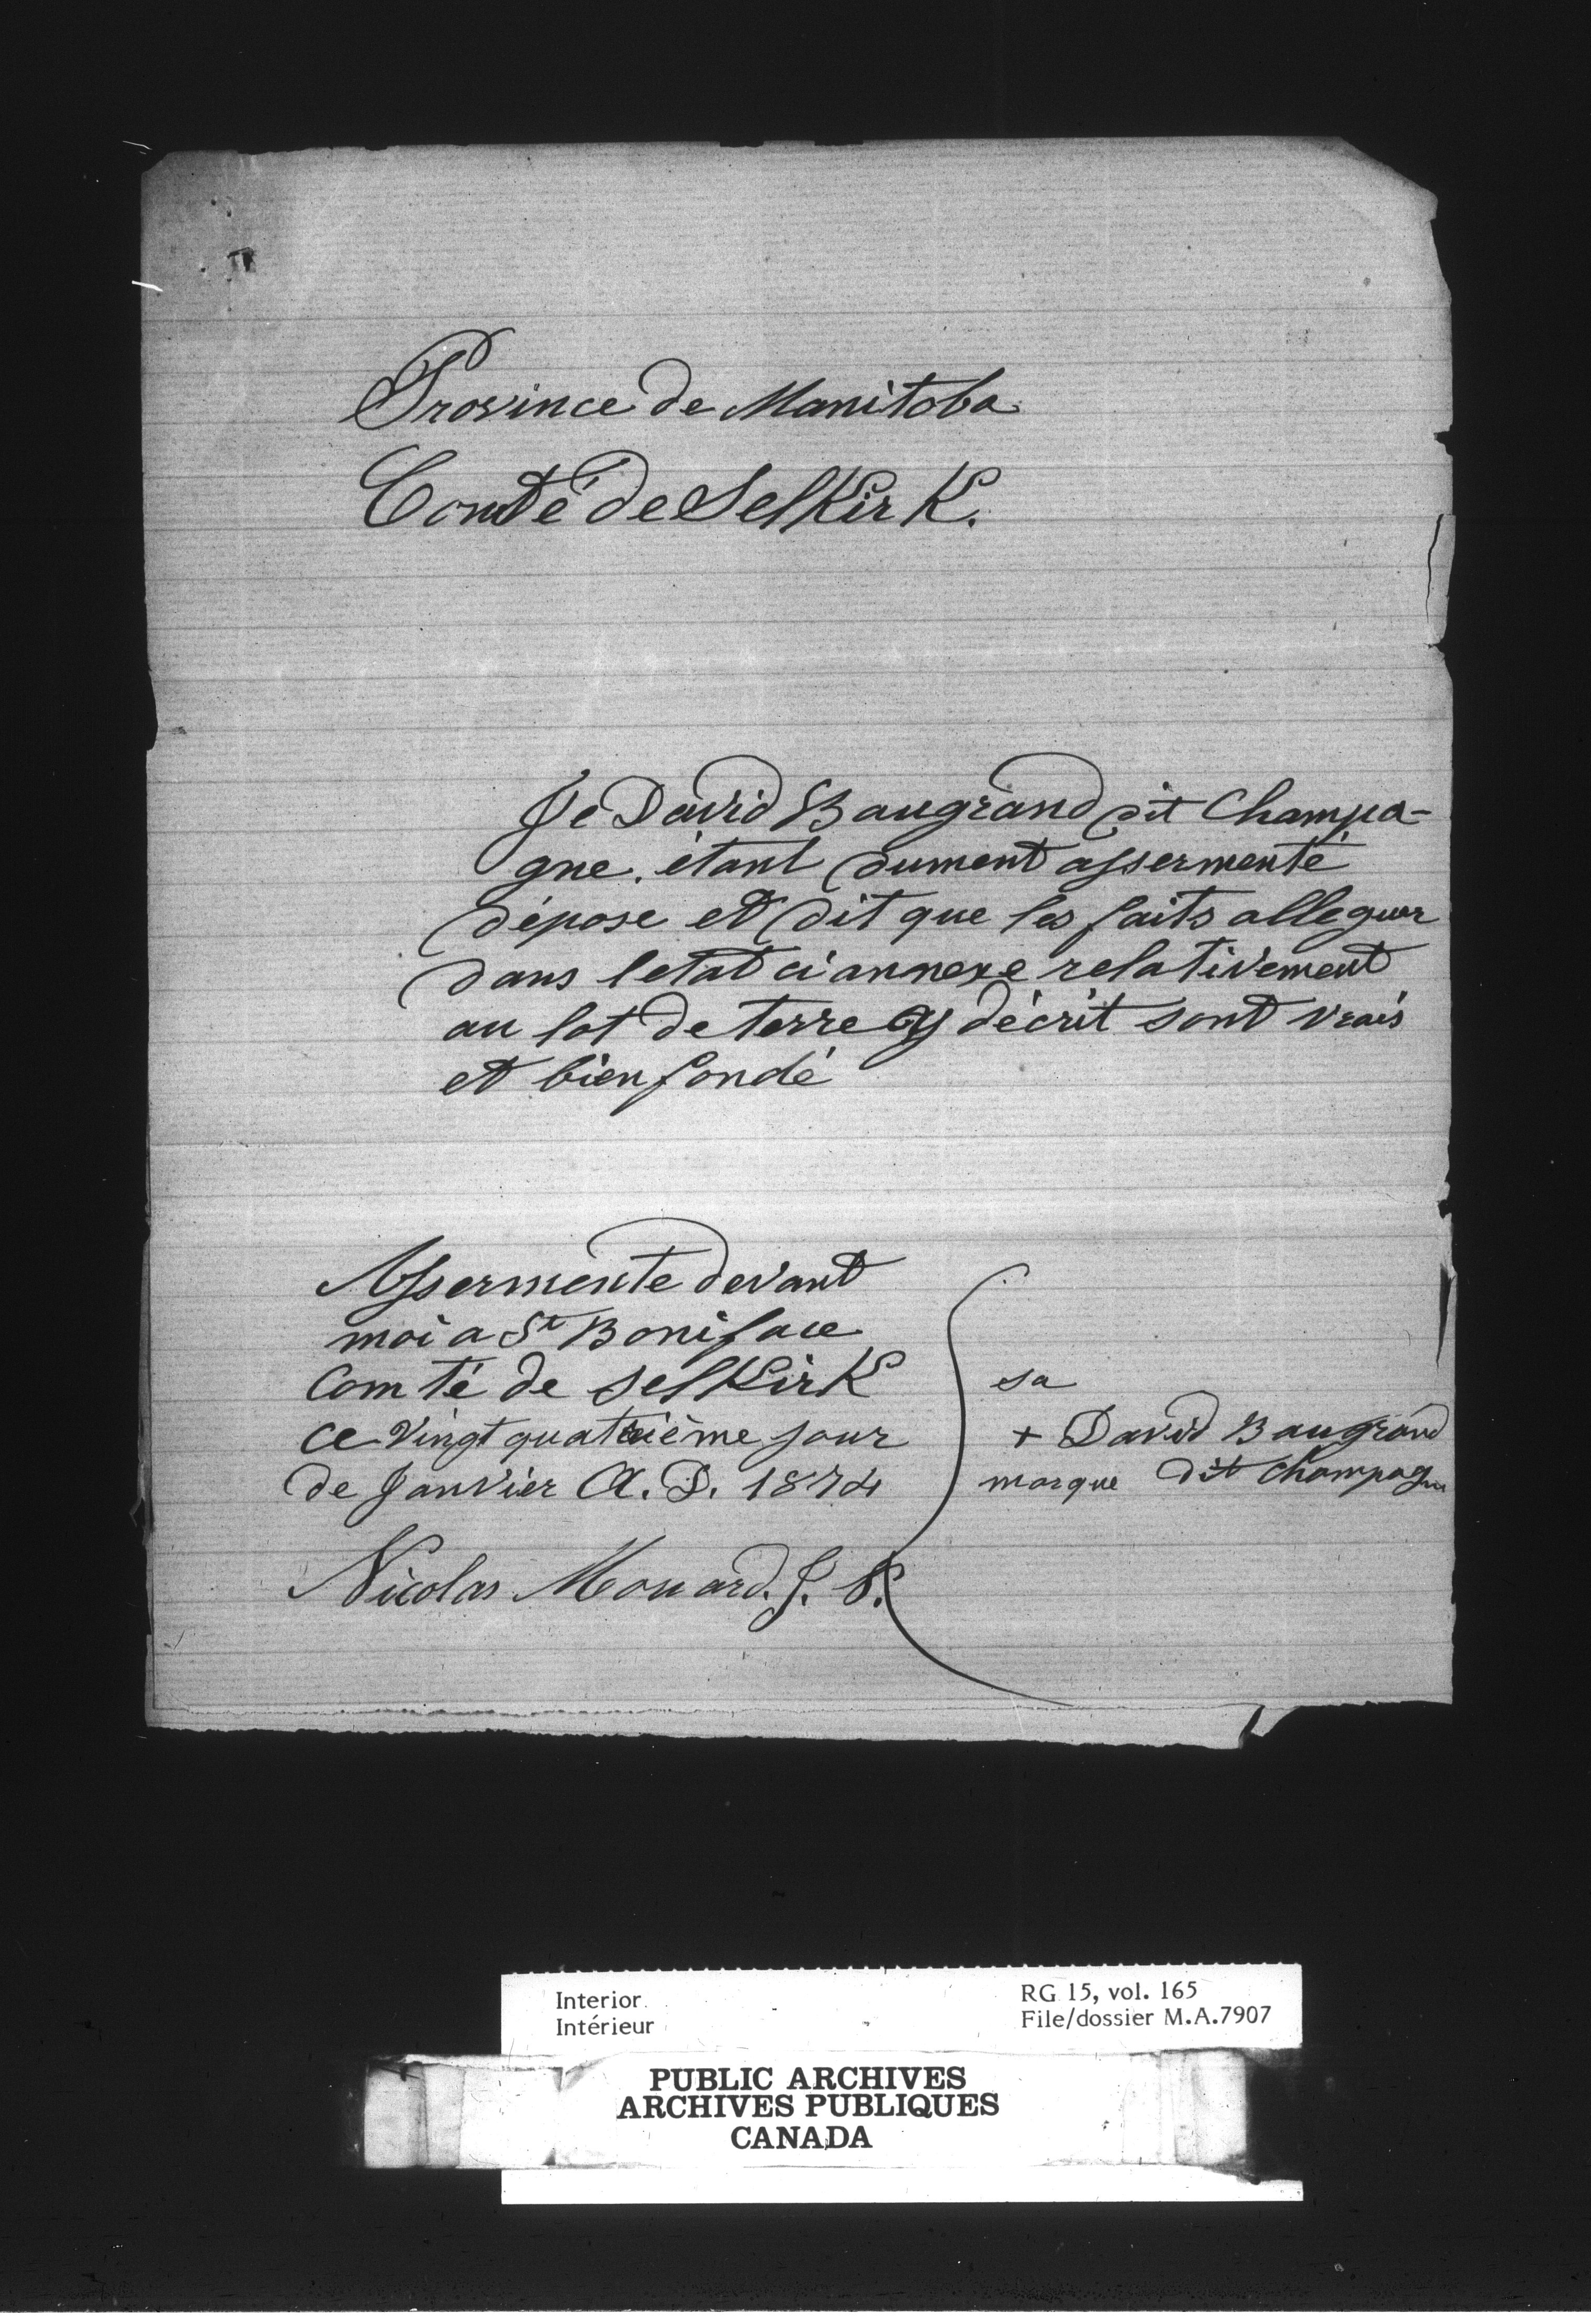 Province de Manitoba
Comté de Selkirk.
Je David Baugrand dit Champa-
gne. étant dument assermenté
dépose et dit que les faits alleguer
dans letat ci annexe relativement
au lot de terre y décrit sont vrais
et bien fondé
Assermente devant
moi a St Boniface
Comté de Selkirk
ce vingt quatrième jour
de Janvier A. D. 1874
Nicolas Mouard. J. P.
sa
+ David Baugrand
marque dit Champagne
Interior
Intérieur
RG 15, vol. 165
File/dossier M.A.7907
PUBLIC ARCHIVES
ARCHIVES PUBLIQUES
CANADA